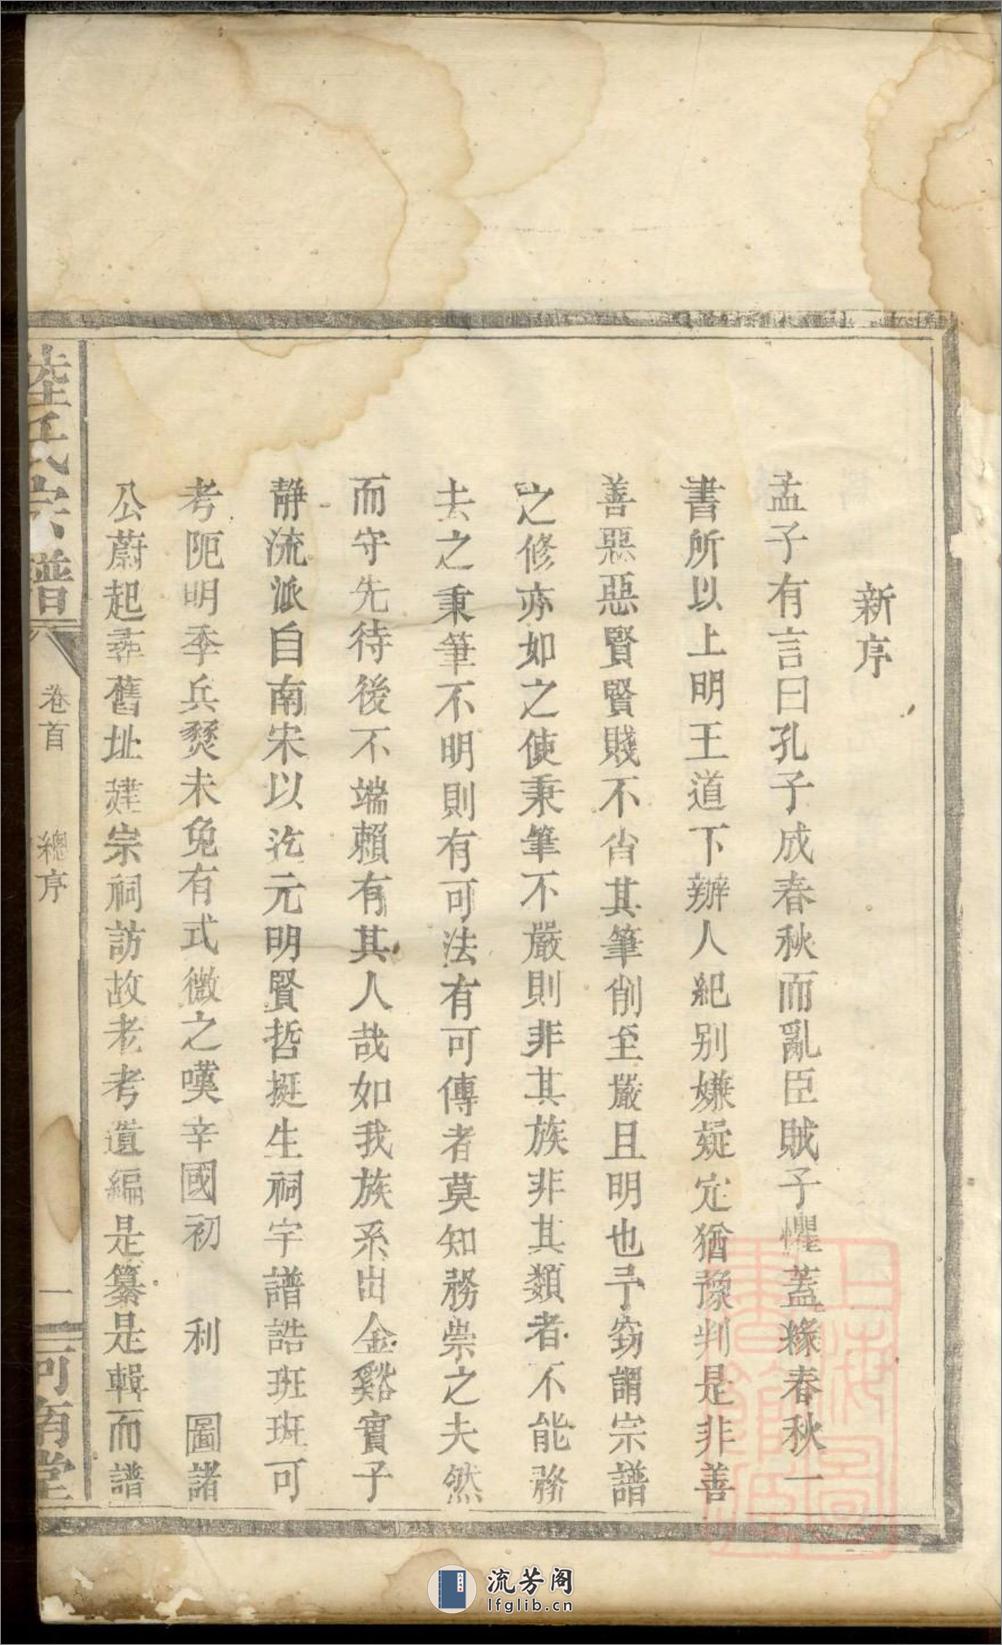 新序
孟子有言曰孔子成春秋而亂臣賊子懼蓋緣春秋一
書所以上明王道下辦人紀别嫌疑定猶豫判是非善
善惡惡賢賢賤不肖其筆削至嚴且明也予竊謂宗譜
之修亦如之使秉筆不嚴則非其族非其類者不能務
去之秉筆不明則有可法有可傳者莫知務崇之夫然
而守先待後不端賴有其人哉如我族系出金谿實子
靜流派自南宋以汔元明賢哲挺生祠宇譜誥班班可
考阨明季兵燹未免有式微之嘆幸國初 利 圖諸
公蔚起尋舊址建宗祠訪故老考遺編是纂是輯而譜
陸氏宗譜
卷首
總序
一
河南堂
上海圖書館藏
流芳阁
lfglib.cn